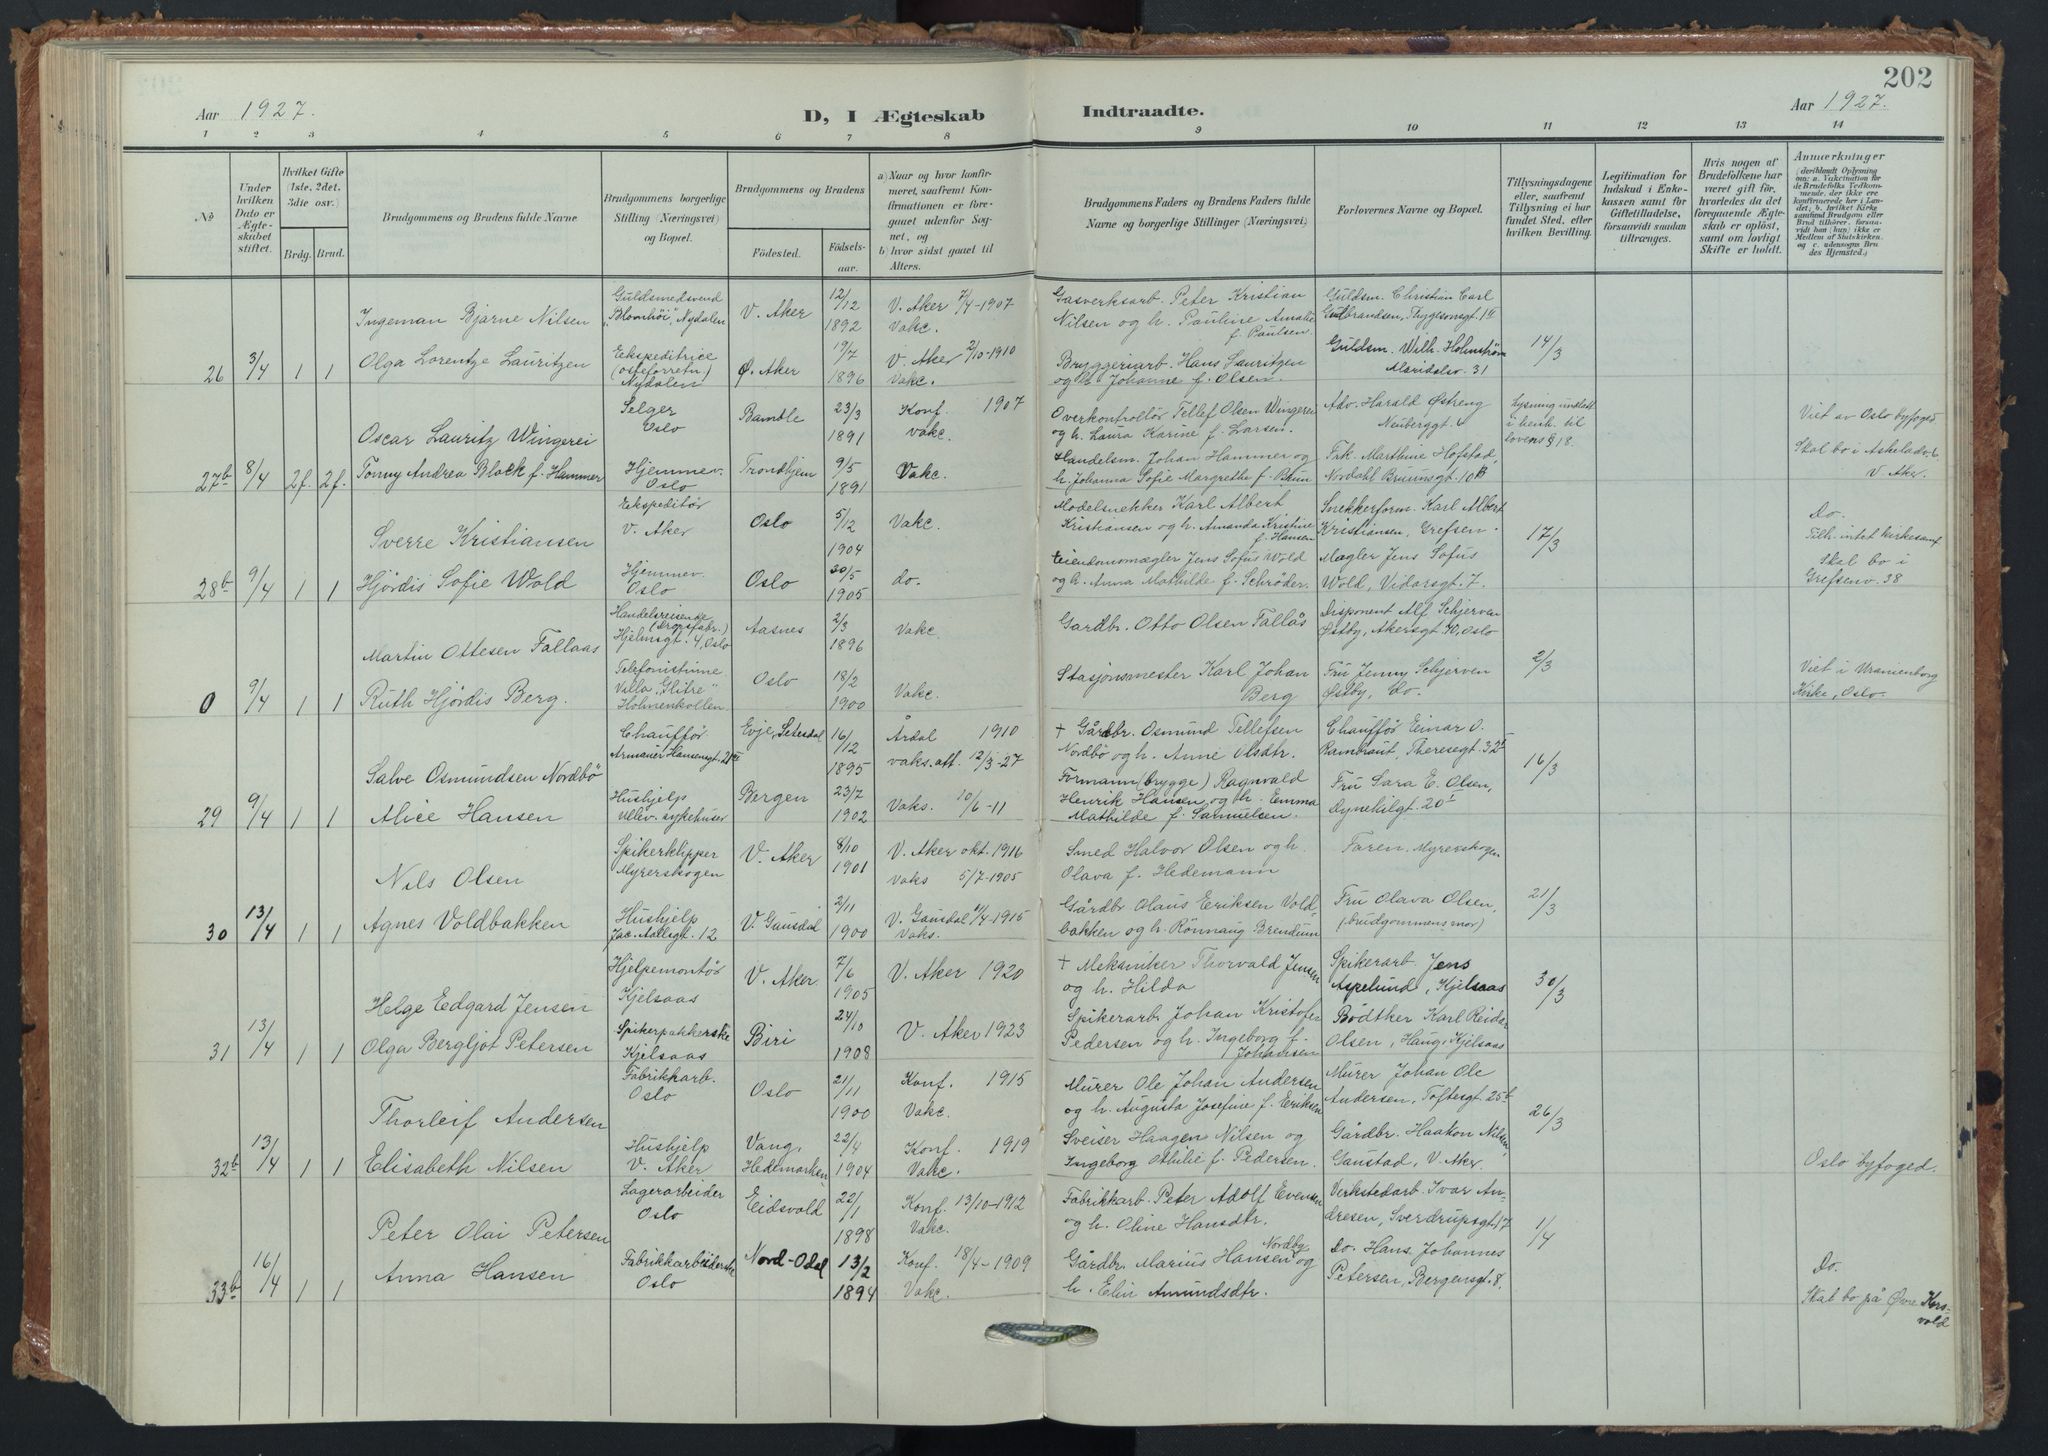 202
Aar 1927.
D, I Ægteskab Indtraadte.
Aar 1927.
1 2 3 4 5 6 7 8 9 10 11 12 13 14
№
Under hvilken Dato er Ægteskabet stiftet.
Hvilket Gifte (1ste, 2det, 3die osv.)
Brdg. Brud.
Brudgommens og Brudens fulde Navne
Brudgommens borgerlige Stilling (Næringsvei) og Bopæl.
Brudgommens og Brudens
Fødested. Fødselsaar.
a) Naar og hvor konfirmeret, saafremt Konfirmationen er foregaaet udenfor Sognet, og
b) hvor sidst gaaet til Alters.
Brudgommens Faders og Brudens Faders fulde Navne og borgerlige Stillinger (Næringsvei).
Forlovernes Navne og Bopæl.
Tillysningsdagene eller, saafremt Tillysning ei har fundet Sted, efter hvilken Bevilling.
Legitimation for Indskud i Enkekassen samt for Giftetilladelse, forsaavidt saadan tiltrænges.
Hvis nogen af Brudefolkene har været gift før, hvorledes da det foregaaende Ægteskab er opløst, samt om lovligt Skifte er holdt.
Anmærkninger
(deriblandt Oplysning om: a. Vaccination for de Brudefolks Vedkommende, der ikke ere konfirmerede her i Landet; b. hvilket Kirkesamfund Brudgom eller Brud tilhører, forsaavidt han (hun) ikke er Medlem af Statskirken, og c. udensogns Brudes Hjemsted.)
Ingeman Bjarne Nilsen
Guldsmedsvend "Blomhöi", Nydalen
V. Aker 12/12 1892
V. Aker 7/4-1907 Vakc.
Gasverksarb. Peter Kristian Nilsen og h. Pauline Amalie f. Paulsen.
Guldsm. Christian Carl Gulbrandsen, Thygesonsgt.
26 3/4 1 1
Olga Lorentze Lauritzen
Ekspeditrice (osteforretn.) Nydalen
Ø. Aker 19/7 1896
V. Aker 2/10-1910 Vakc.
Bryggeriarb. Hans Lauritzen og h. Johanne f. Olsen.
Guldsm. Wilh. Holmström Maridalsv. 31
14/3
Oscar Lauritz Wingerei
Selger Oslo
Bamble 23/3 1891
Konf. 1907 vakc.
Overkontrollör Tellef Olsen Wingerei og h. Laura Karine f. Larsen.
Adv. Harald Østreng Neuberggt. 4
Lysning undlatt i henh. til lovens § 18.
Viet av Oslo byfoged.
27b 8/4 2f. 2f.
Tonny Andrea Block f. Hammer
Hjemmev. Oslo
Trondhjem 9/5 1891
Vakc.
Handelsm. Johan Hammer og h. Johanna Sofie Margrethe f. Bruun
Frk. Marthine Hofstad, Nordahl Bruunsgt. 10B
Skal bo i Askeladv. 6 V. Aker.
Sverre Kristiansen
Ekspeditör V. Aker
Oslo 5/12 1904
Vakc.
Modelsnekker Karl Albert Kristiansen og h. Amanda Kristine f. Hansen
Snekkerform. Karl Albert Kristiansen, Grefsen.
17/3
Do. Tilh. intet kirkesamf.
28b 9/4 1 1
Hjördis Sofie Wold
Hjemmev. Oslo
Oslo 20/5 1905
do.
Eiendomsmægler Jens Sofus Wold og h. Anna Mathilde f. Schröder.
Mægler Jens Sofus Wold, Vidarsgt. 7.
Skal bo i Grefsenv. 38
Martin Ottesen Fallaas
Handelsreisende Hjelmsgt. 4, Oslo
Aasnes 2/3 1896
Vakc.
Gardbr. Otto Olsen Fallås
Disponent Alf Schjerven Østby, Akersgt 70, Oslo
2/3
0 9/4 1 1
Ruth Hjördis Berg.
Telefonistinne Villa "Glitre" Holmenkollen
Oslo 18/2 1900
Vakc.
Stasjonsmester Karl Johan Berg
Fru Jenny Schjerven Østby, do.
Viet i Uranienborg Kirke, Oslo.
Salve Osmundsen Nordbö
Chaufför Armauer Hansensgt.
Evje, Setesdal 16/12 1895
Årdal 1910 vaks. att. 12/3-27
+ Gårdbr. Osmund Tellefsen Nordbö og h. Anne Olsdtr.
Chaufför Einar O. Rambraut, Theresegt. 32
16/3
29 9/4 1 1
Alice Hansen
Hushjelp Ullev. sykehuser
Bergen 23/7 1902
Vaks. 10/6-11
Formann (brygge) Ragnvald Henrik Hansen og h. Emma Mathilde f. Samuelsen.
Fru Sara E. Olsen, Dynekilgt. 20
Nils Olsen
Spikerklipper Myrerskogen
V. Aker 8/10 1901
V. Aker okt. 1916 Vaks 5/7-1905
Smed Halvor Olsen og h. Olava f. Hedemann
Faren. Myrerskogen
30 13/4 1 1
Agnes Voldbakken
Hushjelp Jac. Aallsgt. 12
V. Gausdal 2/11 1900
V. Gausdal 1/4-1915 Vaks.
Gårdbr Olaus Eriksen Voldbakken og h. Rönnaug Brendum
Fru Olava Olsen, (brudgommens mor)
21/3
Helge Edgard Jensen
Hjelpemontör Kjelsaas
V. Aker 7/6 1905
V. Aker 1920
+ Mekaniker Thorvald Jensen og h. Hilda
Spikerarb. Jens Aspelund, Kjelsaas
30/3
31 13/4 1 1
Olga Bergljot Petersen
Spikerpakkerske Kjelsaas
Biri 24/10 1908
V. Aker 1923
Spikerarb. Johan Kristofer Pedersen og h. Ingeborg f. Johansen
Bödtker Karl Reidar Olsen, Haug, Kjelsaas
Thorleif Andersen
Fabrikkarb. Oslo
Oslo 21/11 1900
Konf. 1915 Vakc.
Murer Ole Johan Andersen og h. Augusta Josefine f. Eriksen
Murer Johan Ole Andersen, Toftesgt 25b
26/3
32b 13/4 1 1
Elisabeth Nilsen
Hushjelp V. Aker
Vang, Hedemarken 22/4 1904
Konf. 1919 Vakc.
Sveiser Haagen Nilsen og Ingeborg Othilie f. Pedersen.
Gårdbr. Haakon Nilsen, Gaustad, V. Aker
Oslo byfoged.
Peter Olai Petersen
Lagerarbeider Oslo
Eidsvold 22/1 1898
Konf. 13/10-1912 Vakc.
Fabrikkarb. Peter Adolf Evensen og h. Oline Hansdtr.
Verkstedarb. Ivar Andresen, Sverdrupsgt. 17
1/4
33b 16/4 1 1
Anna Hansen
Fabrikkarbeiderske Oslo
Nord-Odal 13/2 1894
Konf. 18/4-1909 Vakc.
Gårdbr. Marius Hansen Nordby og h. Elin Amundsdtr.
Do. Hans Johannes Petersen, Bergensgt. 8.
Do.
Skal bo på Øvre Korsvold